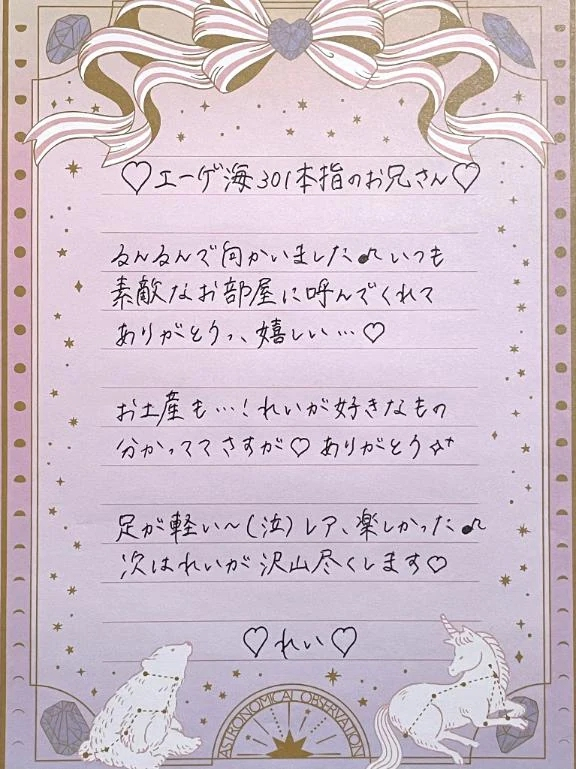 ♡エーゲ海301本指のお兄さん♡
るんるんで向かいました♪いつも
素敵なお部屋に呼んでくれて
ありがとうっ、嬉しい…♡
お土産も…！れいが好きなもの
分かっててさすが♡ありがとう✧⁺
足が軽い〜(泣)レア、楽しかった♫
次はれいが沢山尽くします♡
♡れい♡
ASTRONOMICAL OBSERVATION